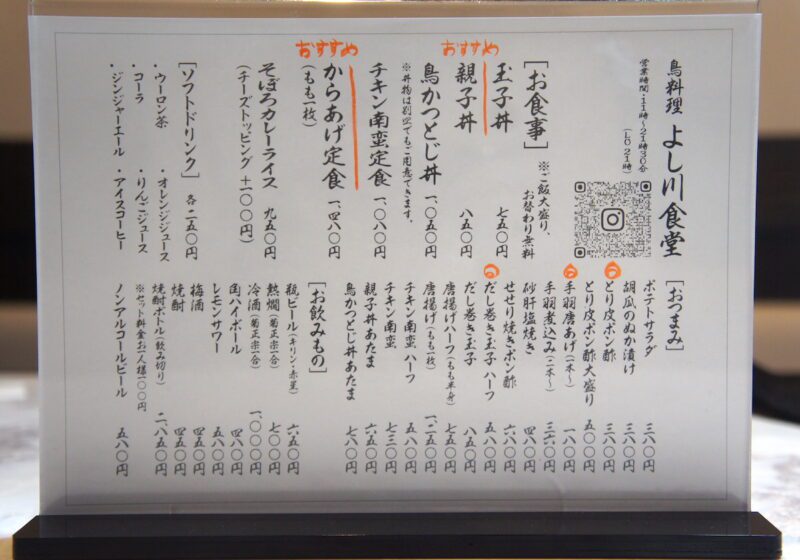 鳥料理 よし川食堂
営業時間・11時～21時30分
(LO 21時)
[お食事]
※ご飯大盛り、
お替わり無料
玉子丼 七五〇円
おすすめ
親子丼 八五〇円
鳥かつとじ丼 一、〇五〇円
※丼物は別空でもご用意できます。
チキン南蛮定食 一、〇八〇円
おすすめ
からあげ定食 一、四八〇円
(もも一枚)
そぼろカレーライス 九五〇円
(チーズトッピング +一〇〇円)
[ソフトドリンク] 各 二五〇円
・ウーロン茶 ・オレンジジュース
・コーラ ・りんごジュース
・ジンジャーエール ・アイスコーヒー
[おつまみ]
ポテトサラダ 三八〇円
胡瓜のぬか漬け 三八〇円
とり皮ポン酢 三八〇円
とり皮ポン酢大盛り 五〇〇円
手羽唐あげ(一本～) 一八〇円
手羽煮込み(二本～) 三六〇円
砂肝塩焼き 四八〇円
せせり焼きポン酢 六八〇円
だし巻き玉子 ハーフ 五八〇円
だし巻き玉子 八五〇円
唐揚げハーフ(もも半身) 七五〇円
唐揚げ(もも一枚) 一、二五〇円
チキン南蛮 ハーフ 五八〇円
チキン南蛮 七三〇円
親子丼あたま 六五〇円
鳥かつとじ丼あたま 七八〇円
[お飲みもの]
瓶ビール(キリン・赤星) 六五〇円
熱燗(菊正宗一合) 七〇〇円
冷酒(菊正宗一合) 一、〇〇〇円
角ハイボール 四八〇円
レモンサワー 五八〇円
梅酒 四五〇円
焼酎 四五〇円
焼酎ボトル(飲み切り) 二、八五〇円
※セット料金お一人様一〇〇円
ノンアルコールビール 五八〇円